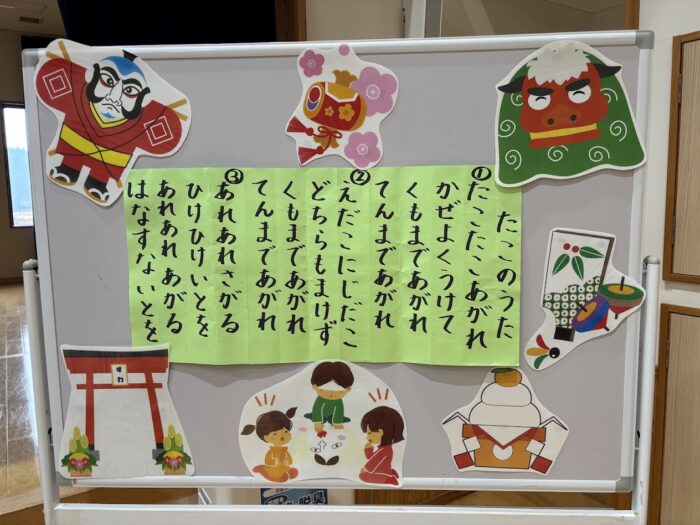 たこのうた
①たこたこあがれ
かぜよくうけて
くもまであがれ
てんまであがれ
②えだこにじだこ
どちらもまけず
くもまであがれ
てんまであがれ
③あれあれさがる
ひけひけいとを
あれあれあがる
はなすないとを
すわ
脱臭